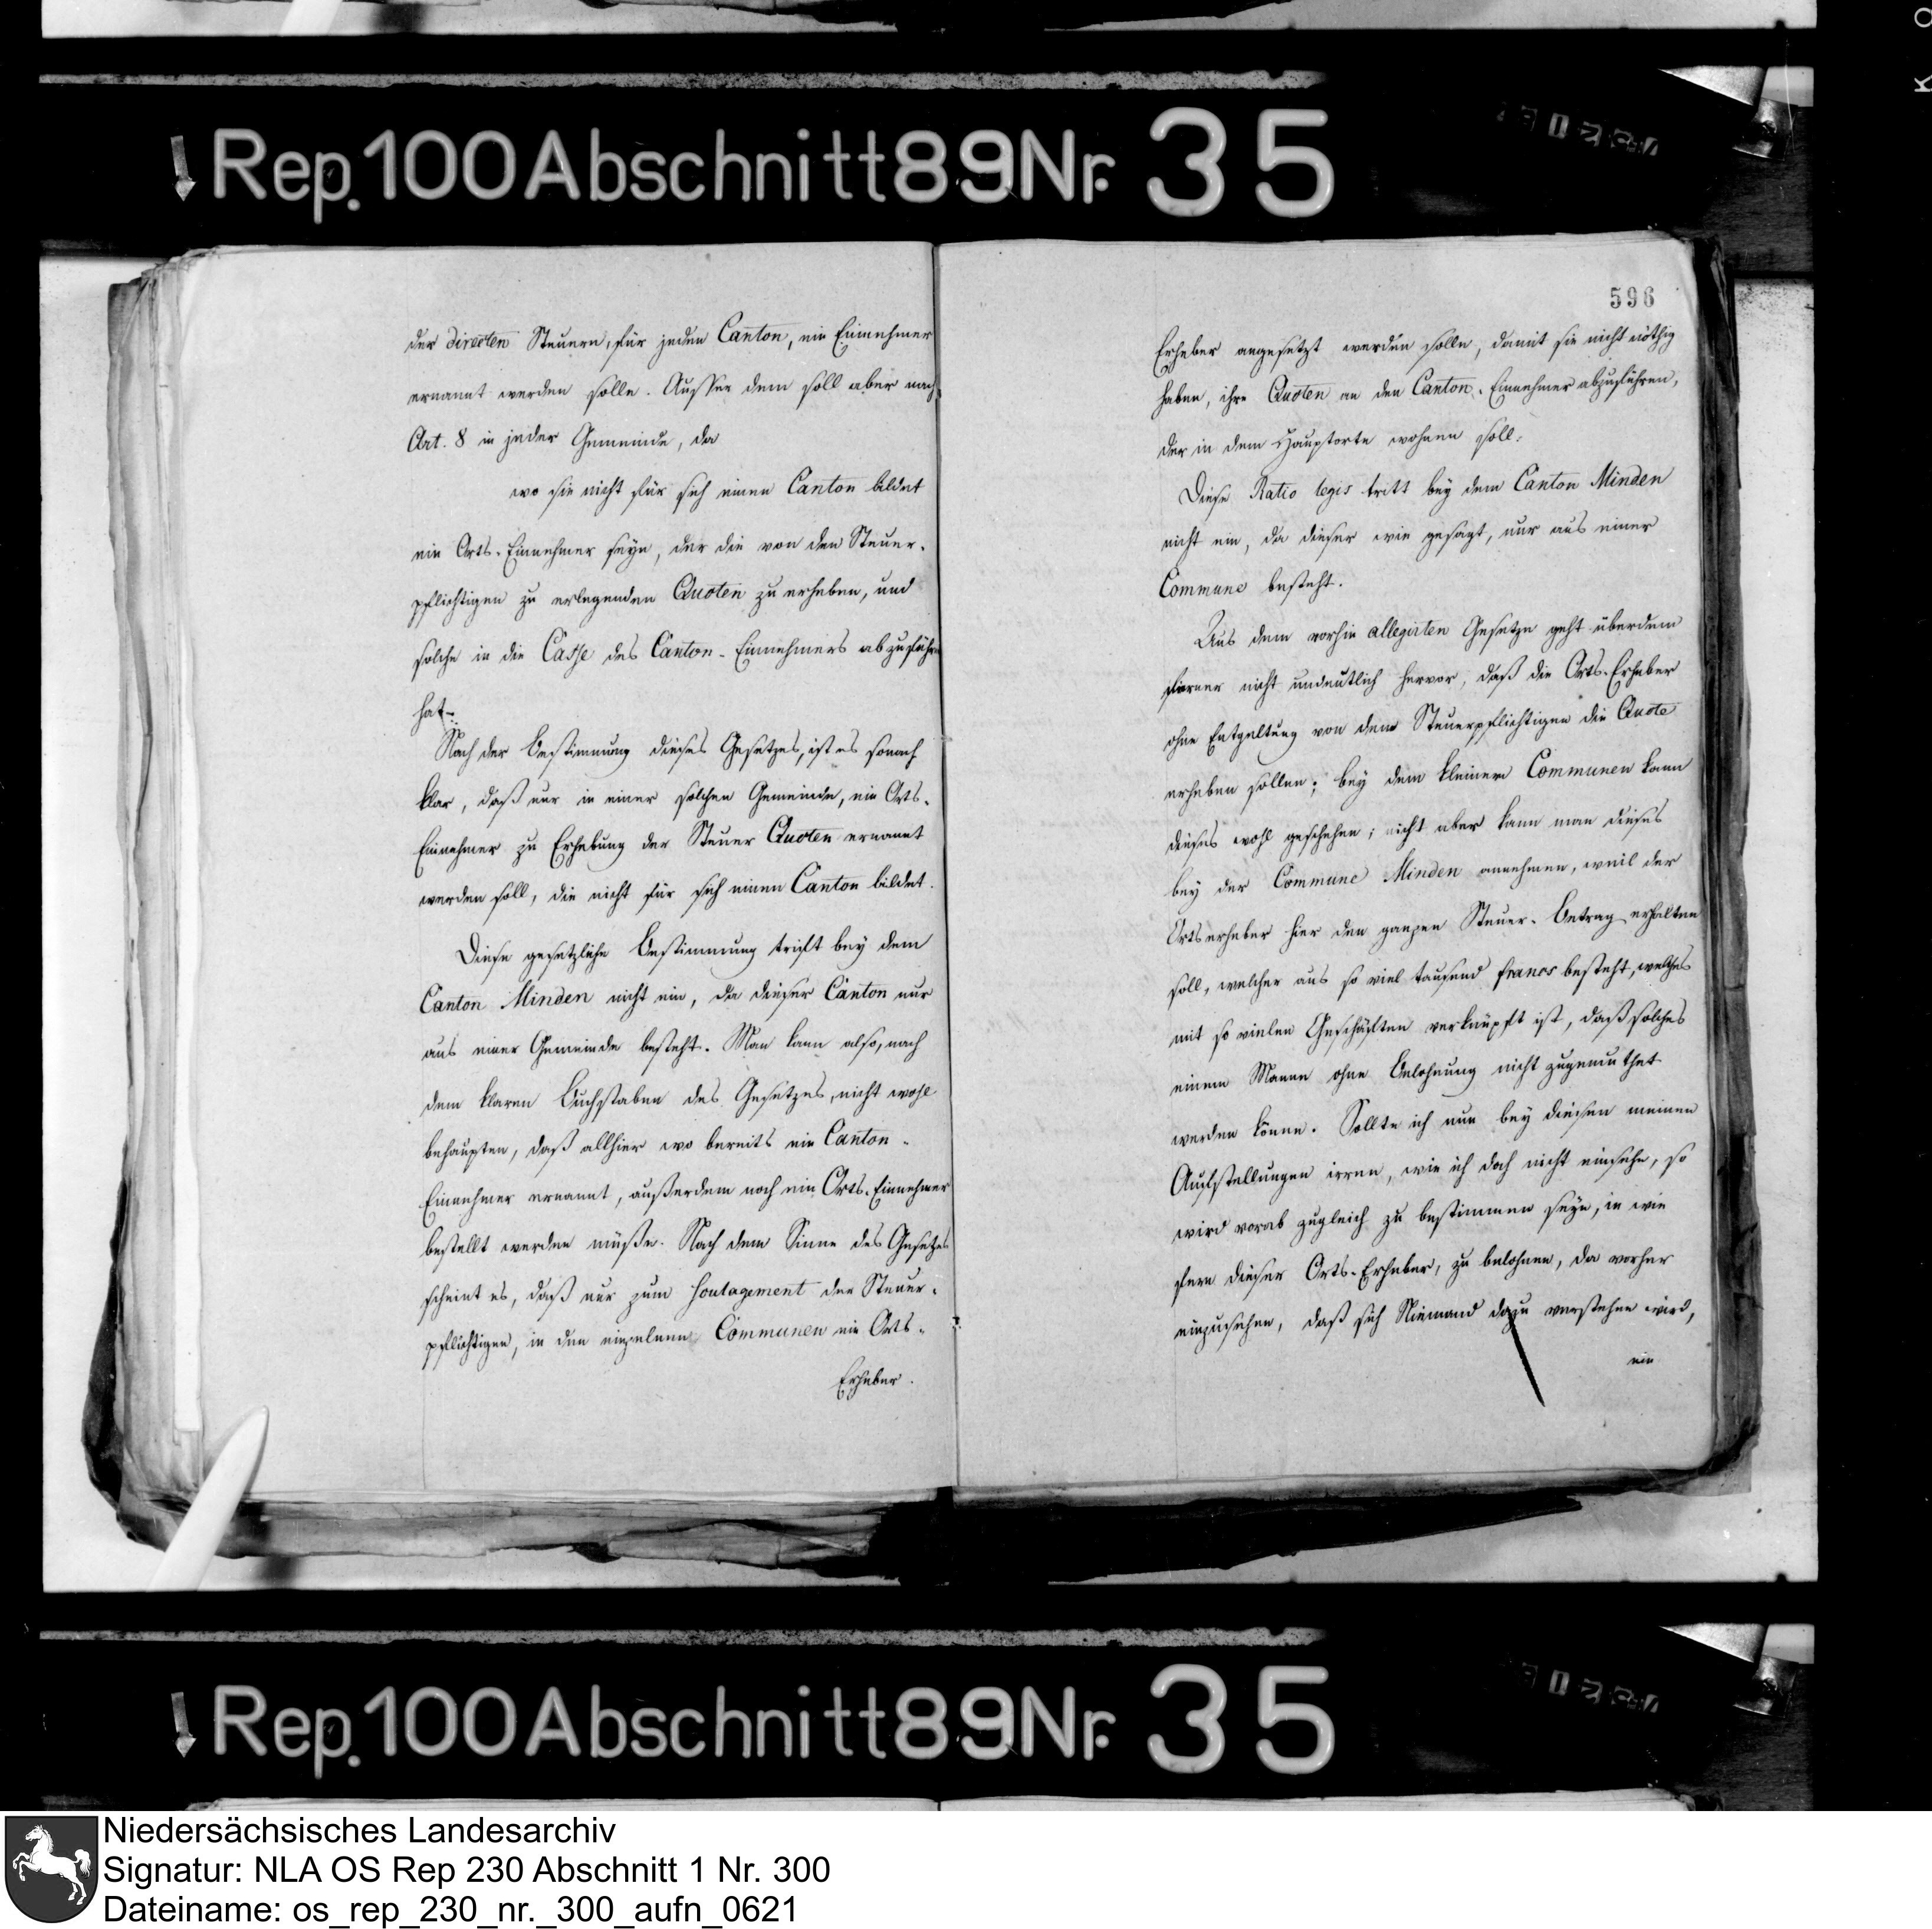 Rep. 100 Abschnitt 89 Nr. 35
der directen Steuern, für jeden Canton, ein Einnehmer
ernannt werden solle. Ausser dem soll aber nach
Art. 8 in jeder Gemeinde, da
wo sie nicht für sich einen Canton bildet
ein Orts-Einnehmer seyn, der die von den Steuer-
pflichtigen zu erlegenden Quoten zu erheben, und
solche in die Casse des Canton-Einnehmers abzuführen
hat.
Nach der Bestimmung dieses Gesetzes, ist es sonach
klar, daß nur in einer solchen Gemeinde, ein Orts-
Einnehmer zu Erhebung der Steuer Quoten ernannt
werden soll, die nicht für sich einen Canton bildet.
Diese gesetzliche Bestimmung trift bey dem
Canton Minden nicht ein, da dieser Canton nur
aus einer Gemeinde besteht. Man kann also, nach
dem klaren Buchstaben des Gesetzes, nicht wohl
behaupten, daß allhier wo bereits ein Canton-
Einnehmer ernannt, außerdem noch ein Orts-Einnehmer
bestellt werden müße. Nach dem Sinne des Gesetzes
scheint es, daß nur zum soulagement der Steuer-
pflichtigen, in den einzelnen Communen ein Orts-
Erheber.
596
Erheber angesetzt werden solle, damit sie nicht nöthig
haben, ihre Quoten an den Canton-Einnehmer abzuführen,
der in dem Hauptorte wohnen soll.
Diese Ratio legis tritt bey dem Canton Minden
nicht ein, da dieser wie gesagt, nur aus einer
Commune besteht.
Aus dem vorhin allegirten Gesetze geht überdem
ferner nicht undeutlich hervor, daß die Orts-Erheber
ohne Entgeltung von dem Steuerpflichtigen die Quote
erheben sollen; bey dem kleinern Communen kann
dieses wohl geschehen; nicht aber kann man dieses
bey der Commune Minden annehmen, weil der
Ortserheber hier den ganzen Steuer-Betrag erhalten
soll, welcher aus so viel tausend francs besteht, welches
mit so vielen Geschäften verknüpft ist, daß solches
einem Manne ohne Belohnung nicht zugemuthet
werden könne. Sollte ich nun bey diesen meinen
Aufstellungen irren, wie ich doch nicht einsehe, so
wird vorab zugleich zu bestimmen seyn, in wie
fern dieser Orts-Erheber, zu belohnen, da vorher
einzusehen, daß sich Niemand dazu verstehen wird,
ein
Rep. 100 Abschnitt 89 Nr. 35
Niedersächsisches Landesarchiv
Signatur: NLA OS Rep 230 Abschnitt 1 Nr. 300
Dateiname: os_rep_230_nr._300_aufn_0621